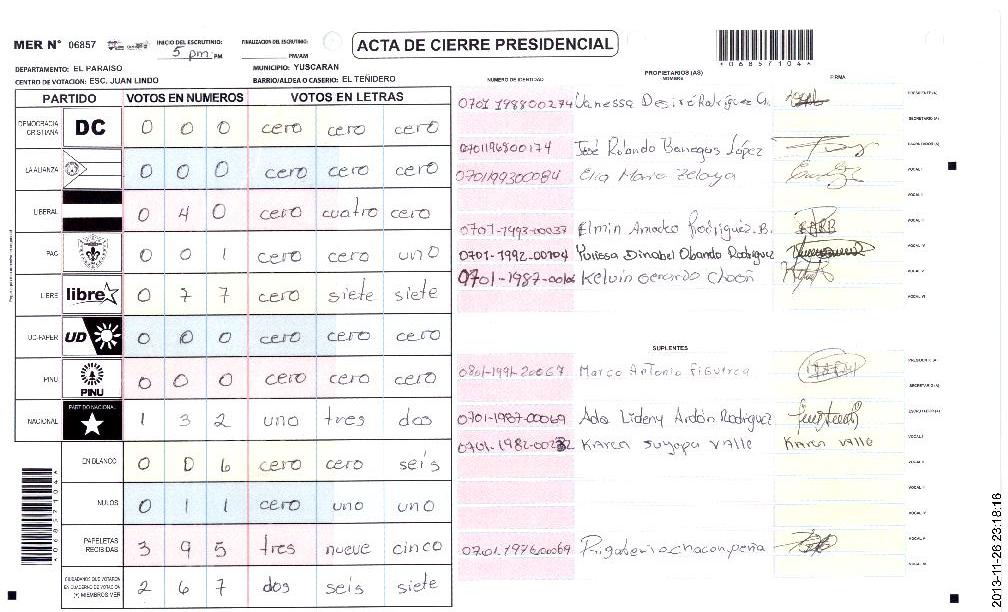 MER N° 06857 INICIO DEL ESCRUTINIO: 5 pm PM FINALIZACION DEL ESCRUTINIO: PM/AM
ACTA DE CIERRE PRESIDENCIAL
*06857104*
DEPARTAMENTO: EL PARAISO MUNICIPIO: YUSCARAN
CENTRO DE VOTACION: ESC. JUAN LINDO BARRIO/ALDEA O CASERIO: EL TEÑIDERO
PARTIDO VOTOS EN NUMEROS VOTOS EN LETRAS
DEMOCRACIA CRISTIANA DC 0 0 0 cero cero cero
LA ALIANZA 0 0 0 cero cero cero
LIBERAL 0 4 0 cero cuatro cero
PAC 0 0 1 cero cero uno
LIBRE libre 0 7 7 cero siete siete
UD-FAPER UD 0 0 0 cero cero cero
PINU PINU 0 0 0 cero cero cero
NACIONAL PARTIDO NACIONAL 1 3 2 uno tres dos
EN BLANCO 0 0 6 cero cero seis
NULOS 0 1 1 cero uno uno
PAPELETAS RECIBIDAS 3 9 5 tres nueve cinco
CIUDADANOS QUE VOTARON EN CUADERNO DE VOTACION (+) MIEMBROS MER 2 6 7 dos seis siete
NUMERO DE IDENTIDAD PROPIETARIOS (AS) NOMBRE FIRMA
0701 198800274 Vanessa Desiré Rodríguez G. PRESIDENTE (A)
SECRETARIO (A)
0701196800174 José Rolando Banegas López ESCRUTADOR (A)
0701199300084 Elia Maria Zelaya VOCAL I
VOCAL II
0701-1993-00037 Elmin Amadeo Rodriguez B. VOCAL III
0701-1992-00104 Yorissa Dinabel Obando Rodriguez VOCAL IV
0701-1987-00106 Kelvin Gerardo Chacón VOCAL V
VOCAL VI
SUPLENTES
0801-1991-20067 Marco Antonio Figueroa PRESIDENTE (A)
SECRETARIO (A)
0701-1987-00069 Ada Lideny Ardón Rodriguez ESCRUTADOR (A)
0701-1982-00232 Karen Suyapa Valle Karen Valle VOCAL I
VOCAL II
VOCAL III
VOCAL IV
0701-1976-00069 chacon peña VOCAL V
VOCAL VI
2013-11-26 23:18:16